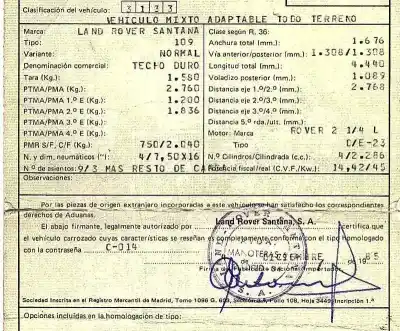 Clasificación del vehículo: 3 1 3 3
VEHICULO MIXTO ADAPTABLE TODO TERRENO
Marca: LAND ROVER SANTANA
Clase según R. 36:
Tipo: 109
Anchura total (mm.) 1.676
Variante: NORMAL
Vía anterior/posterior (mm.) 1.308/1.308
Denominación comercial: TECHO DURO
Longitud total (mm.) 4.440
Tara (Kg.) 1.580
Voladizo posterior (mm.) 1.089
PTMA/PMA (Kg.) 2.760
Distancia eje 1.º/2.º (mm.) 2.768
PTMA/PMA 1.º E (Kg.) 1.200
Distancia eje 2.º/3.º (mm.)
PTMA/PMA 2.º E (Kg.) 1.836
Distancia eje 3.º/4.º (mm.)
PTMA/PMA 3.º E (Kg.)
Distancia 5.ª rda./ult. (mm.)
PTMA/PMA 4.º E (Kg.)
Motor: Marca ROVER 2 1/4 L
PMR S/F, C/F (Kg.) 750/2.040
Tipo C/E-23
N. y dim. neumáticos 4/7,50X16
N.º Cilindros/Cilindrada (c.c.) 4/2.286
N.º de asientos 9/3 MAS RESTO DE CA
Potencia fiscal/real (C.V.F./Kw.) 14,42/45
Observaciones:
Por las piezas de origen extranjero incorporadas a este vehículo se han satisfecho los correspondientes
derechos de Aduanas.
El abajo firmante, legalmente autorizado por Land Rover Santana, S. A. certifica que
el vehículo carrozado cuyas características se reseñan es completamente conforme con el tipo homologado
con la contraseña C-014
MANOTERAS
DICIEMBRE 85
Firma
Sociedad Inscrita en el Registro Mercantil de Madrid, Tomo 1096 G. Folio 108, Hoja Inscripción 1.ª
Opciones incluidas en la homologación de tipo: